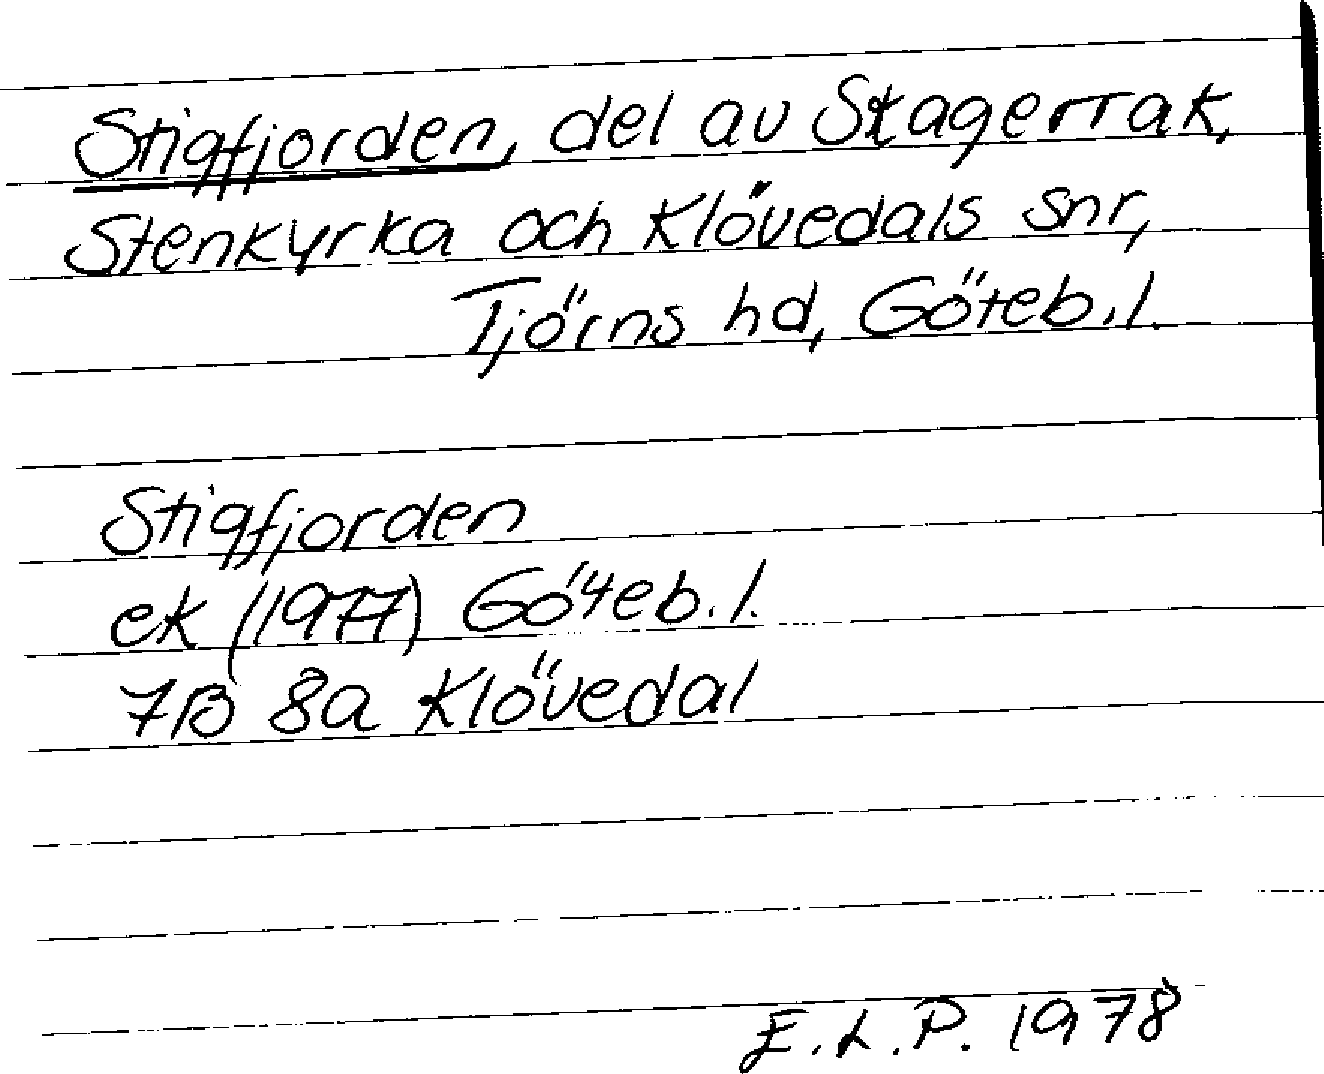 Stigfjorden, del av Skagerrak,
Stenkyrka och Klövedals snr,
Tjörns hd, Göteb.l.
Stigfjorden
ek (1977) Göteb.l.
7B 8a Klövedal
E.L.P. 1978